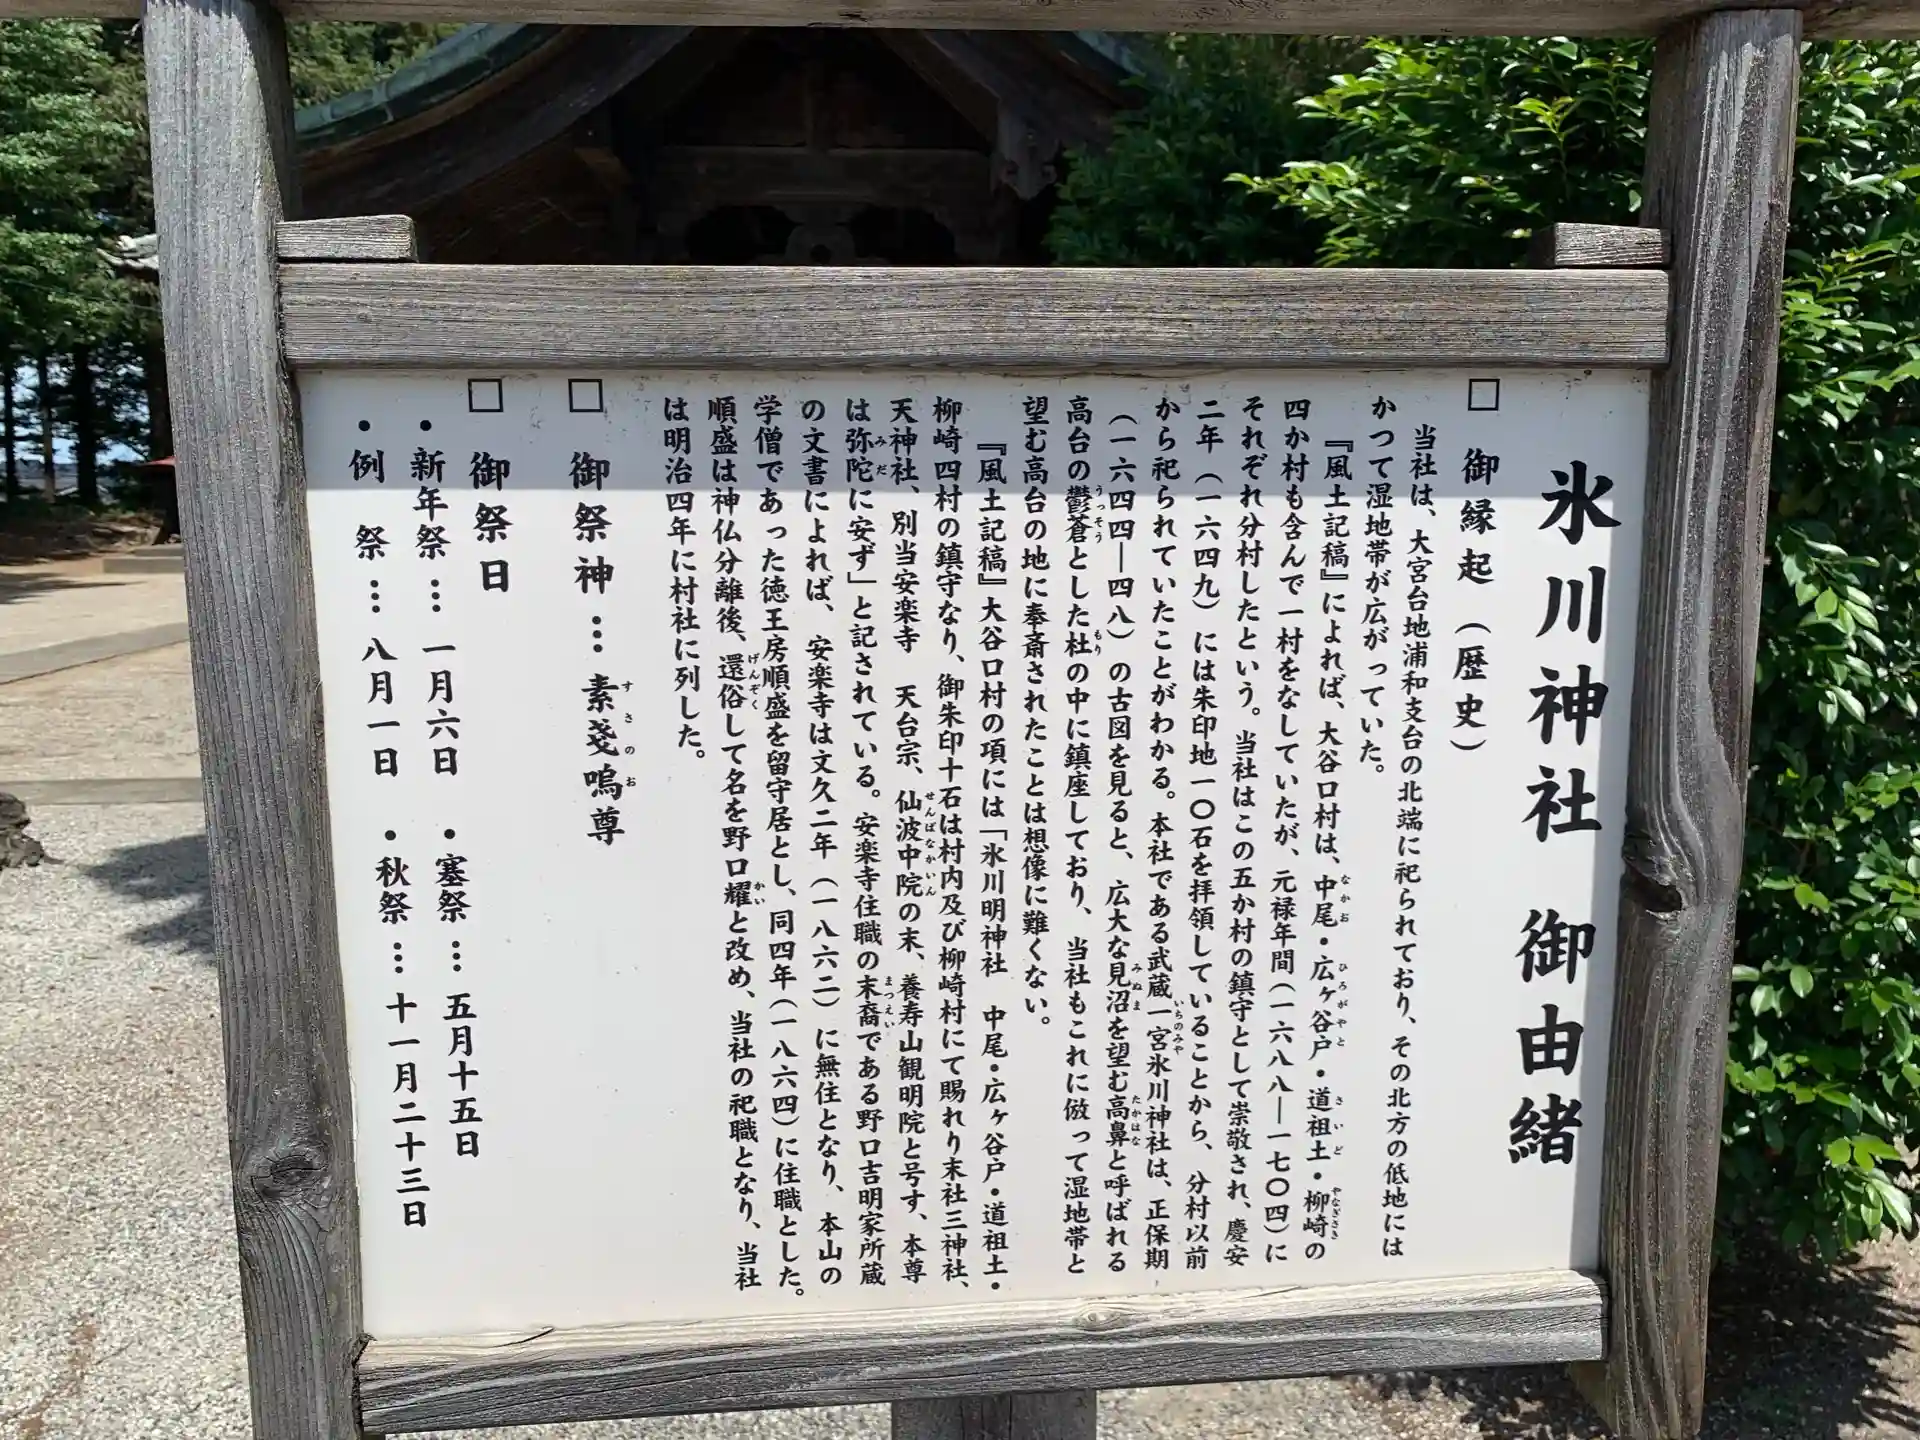 氷川神社 御由緒
□ 御縁起(歴史)
当社は、大宮台地浦和支台の北端に祀られており、その北方の低地には
かつて湿地帯が広がっていた。
『風土記稿』によれば、大谷口村は、中尾・広ヶ谷戸・道祖土・柳崎の
四か村も含んで一村をなしていたが、元禄年間(一六八八―一七〇四)に
それぞれ分村したという。当社はこの五か村の鎮守として崇敬され、慶安
二年(一六四九)には朱印地一〇石を拝領していることから、分村以前
から祀られていたことがわかる。本社である武蔵一宮氷川神社は、正保期
(一六四四―四八)の古図を見ると、広大な見沼を望む高鼻と呼ばれる
高台の鬱蒼とした杜の中に鎮座しており、当社もこれに倣って湿地帯と
望む高台の地に奉斎されたことは想像に難くない。
『風土記稿』大谷口村の項には「氷川明神社 中尾・広ヶ谷戸・道祖土・
柳崎四村の鎮守なり、御朱印十石は村内及び柳崎村にて賜れり末社三神社、
天神社、別当安楽寺 天台宗、仙波中院の末、養寿山観明院と号す、本尊
は弥陀に安ず」と記されている。安楽寺住職の末裔である野口吉明家所蔵
の文書によれば、安楽寺は文久二年(一八六二)に無住となり、本山の
学僧であった徳王房順盛を留守居とし、同四年(一八六四)に住職とした。
順盛は神仏分離後、還俗して名を野口耀と改め、当社の祀職となり、当社
は明治四年に村社に列した。
□ 御祭神…素戔嗚尊
□ 御祭日
・新年祭… 一月六日 ・塞祭… 五月十五日
・例 祭… 八月一日 ・秋祭… 十一月二十三日